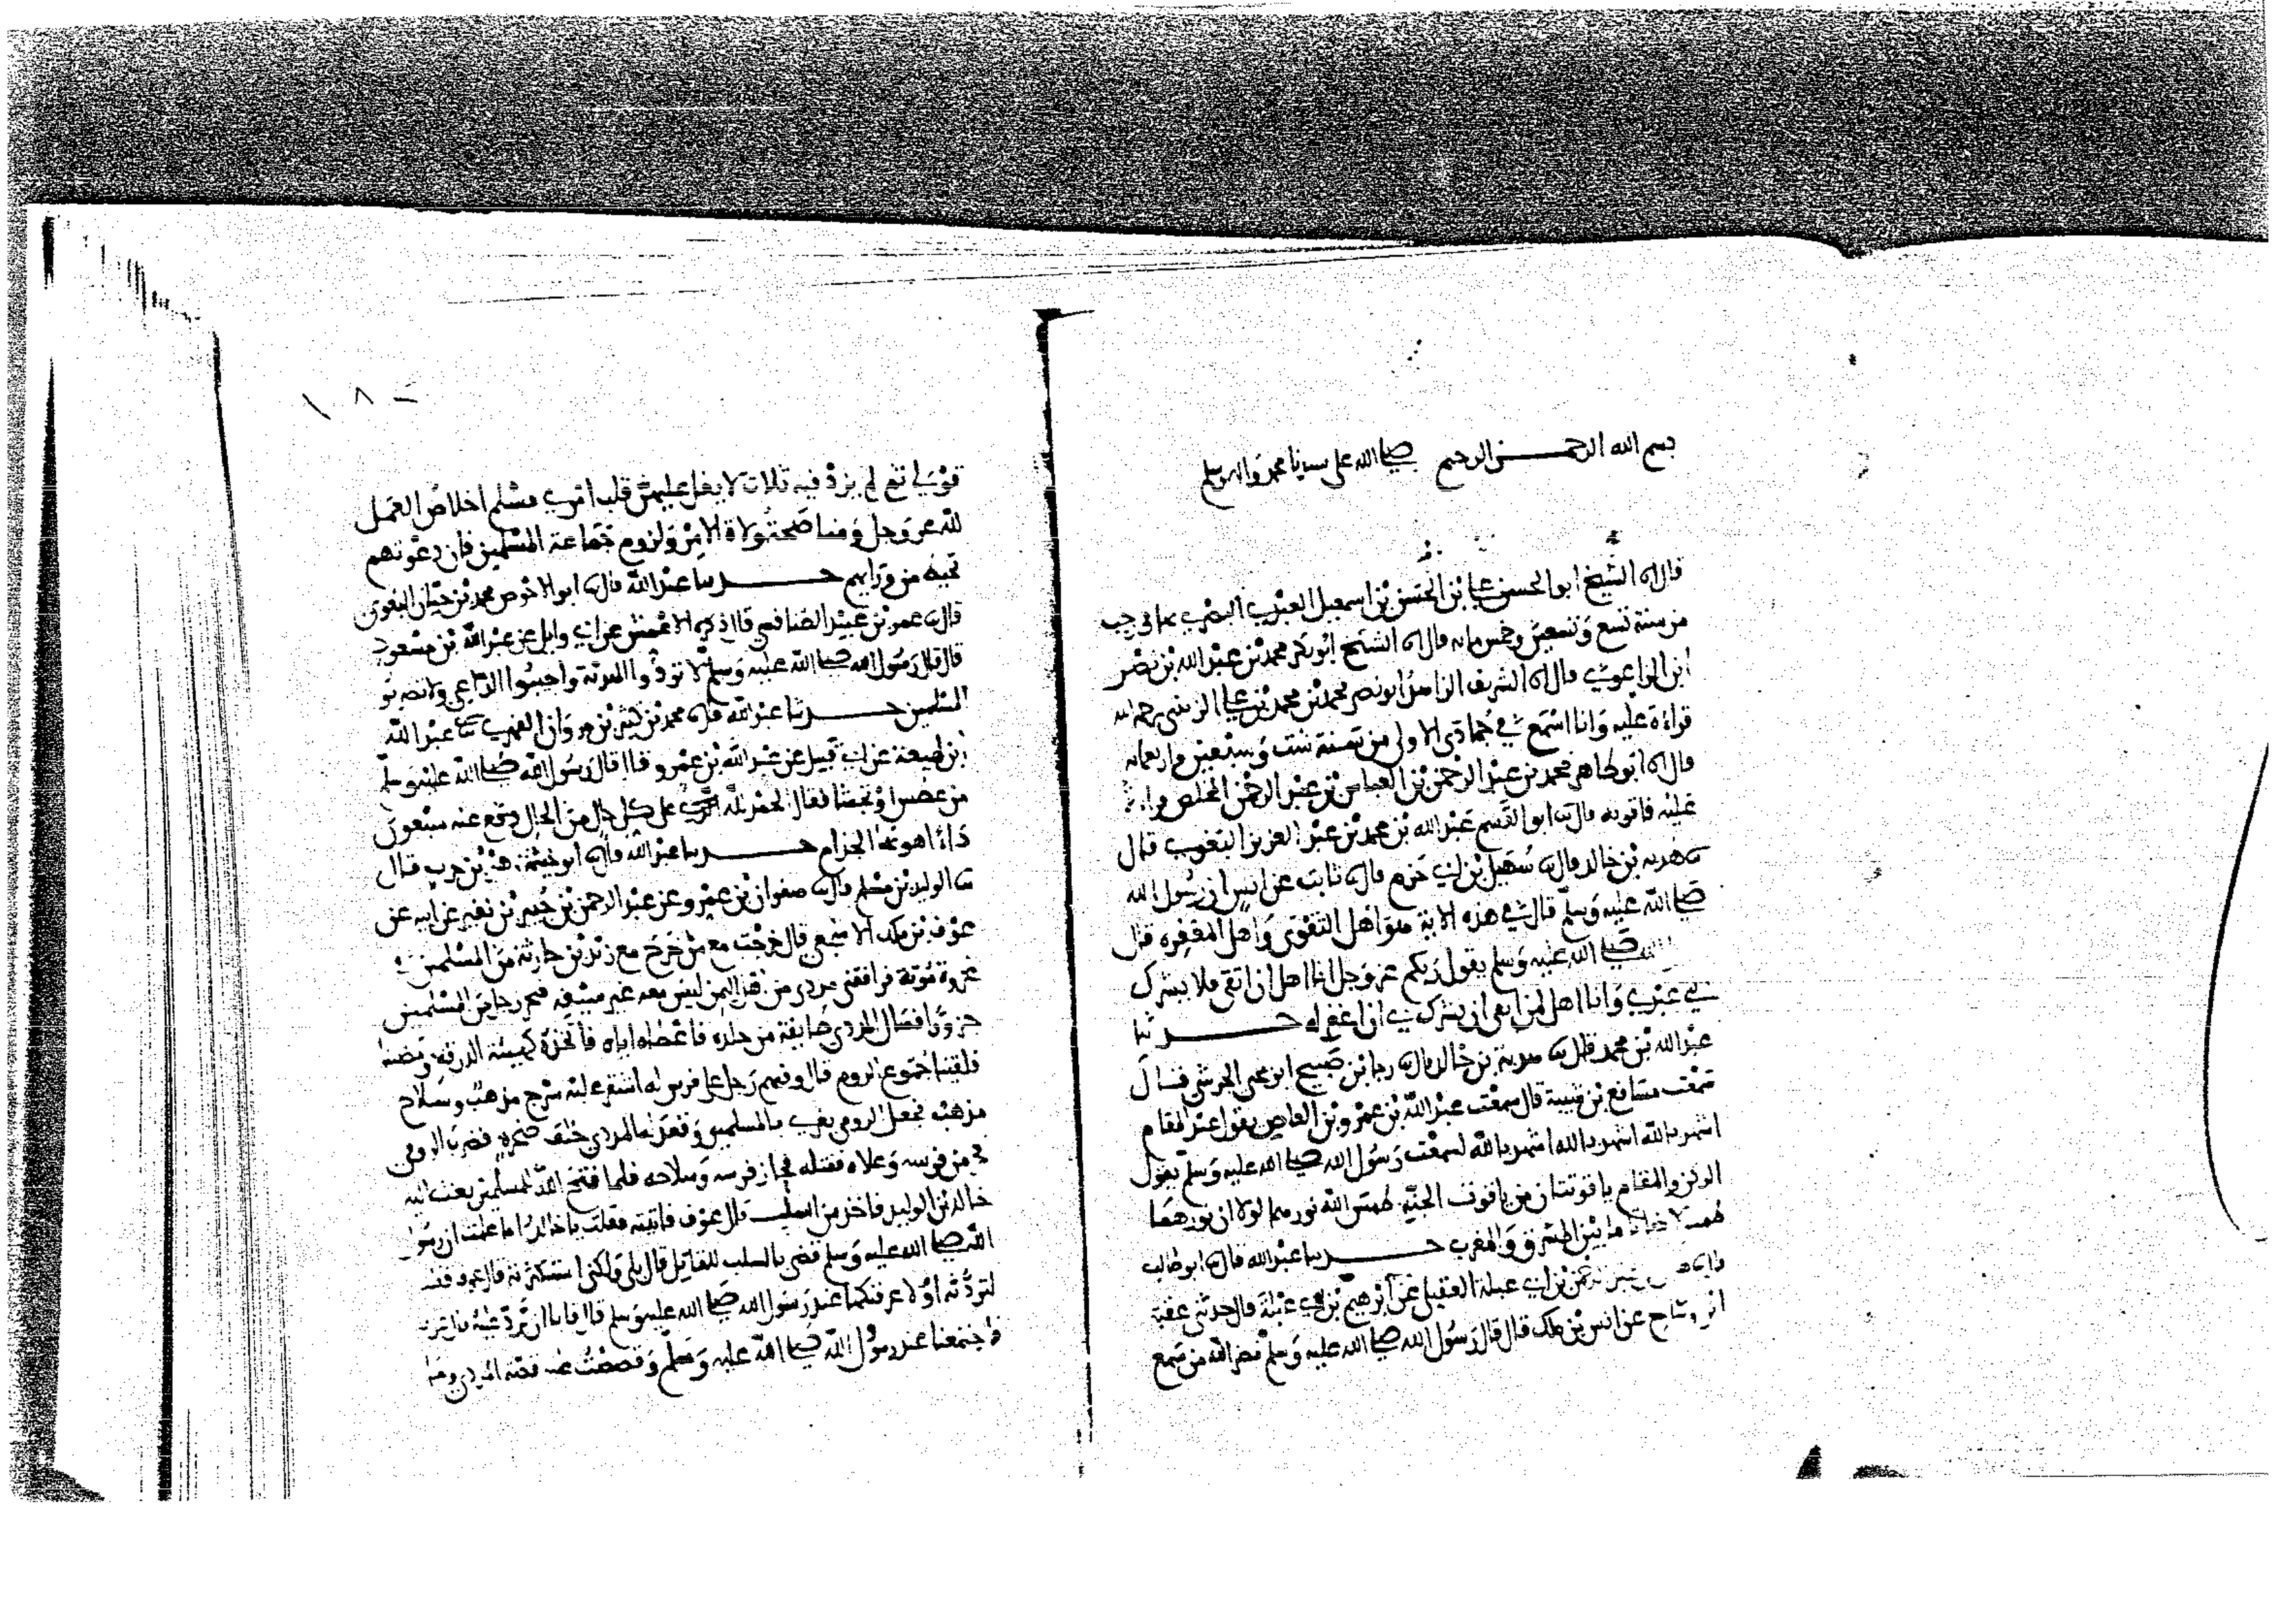 بسم الله الرحمن الرحيم صلى الله على سيدنا محمد واله وسلم
قال انا الشيخ ابو الحسن علي بن الحسن بن اسمعيل العبدري البصري بها في رجب
من سنة تسع وتسعين وخمس مايه قال انا الشيخ ابو بكر محمد بن عبد الله بن نصر
ابن الزاغوني قال انا الشريف الزاهد ابو نصر محمد بن محمد بن علي الزينبي رحمه الله
قراءة عليه وانا اسمع في جمادى الاولى من سنة ست وسبعين واربعمايه
قال انا ابو طاهر محمد بن عبد الرحمن بن العباس بن عبد الرحمن المخلص قراءة
عليه فاقر به قال نا ابو القسم عبد الله بن محمد بن عبد العزيز البغوي قال
نا هدبه بن خالد قال نا سهيل بن ابي حزم قال نا ثابت عن انس ان رسول الله
صلى الله عليه وسلم قال في هذه الاية هو اهل التقوى واهل المغفره قال
صلى الله عليه وسلم يقول ربكم عز وجل انا اهل ان اتقى فلا يشرك
بي غيري وانا اهل لمن اتقى ان يشرك بي ان اغفر له حدثنا
عبد الله بن محمد قال نا هدبة بن خالد قال نا رجا بن صبيح ابو يحيى الحرشي قال
سمعت مسافع بن شيبة قال سمعت عبد الله بن عمرو بن العاص يقول عند المقام
اشهد بالله اشهد بالله اشهد بالله لسمعت رسول الله صلى الله عليه وسلم يقول
الركن والمقام ياقوتتان من ياقوت الجنة طمس الله نورهما لولا ان نورهما
طمس لاضاء ما بين المشرق والمغرب حدثنا عبد الله قال نا ابو طالب
بن ابي عبلة العقيلي عن ابرهيم بن ابي عبلة قال حدثني عقبة
ابن وساج عن انس بن ملك قال قال رسول الله صلى الله عليه وسلم نضر الله من سمع
١٨٠
قولي ثم لم يزد فيه ثلاث لا يغل عليهن قلب امرئ مسلم اخلاص العمل
لله عز وجل ومناصحة ولاة الامر ولزوم جماعة المسلمين فان دعوتهم
تحيط من ورايهم حدثنا عبد الله قال نا ابو الاحوص محمد بن حيان البغوي
قال نا عمر بن عبيد الطنافسي قال ذكره الاعمش عن ابي وايل عن عبد الله بن مسعود
قال قال رسول الله صلى الله عليه وسلم لا تردوا الهدية واجيبوا الداعي ولا تضربوا
المسلمين حدثنا عبد الله قال نا محمد بن كثير بن مروان الفهري نا عبد الله
ابن لهيعة عن ابي قبيل عن عبد الله بن عمرو قال قال رسول الله صلى الله عليه وسلم
من عطس او تجشا فقال الحمد لله على كل حال من الحال دفع عنه سبعون
داء اهونها الجذام حدثنا عبد الله قال نا ابو خيثمة زهير بن حرب قال
نا الوليد بن مسلم قال نا صفوان بن عمرو عن عبد الرحمن بن جبير بن نفير عن ابيه عن
عوف بن ملك الاشجعي قال خرجت مع من خرج مع زيد بن حارثة من المسلمين في
غزوة موتة فرافقني مددي من اهل اليمن ليس معه غير سيفه فنحر رجل من المسلمين
جزورا فسال المددي طايفة من جلده فاعطاه اياه فاتخذه كهيئة الدرقه ومضينا
فلقينا جموع الروم قال وفيهم رجل على فرس له اشقر عليه سرج مذهب وسلاح
مذهب فجعل الرومي يغري بالمسلمين وقعد له المددي خلف صخرة فضرب الرومي
فخر من فرسه وعلاه فقتله فحاز فرسه وسلاحه فلما فتح الله للمسلمين بعث اليه
خالد بن الوليد فاخذ من السلب قال عوف فاتيته فقلت يا خالد اما علمت ان رسول
الله صلى الله عليه وسلم قضى بالسلب للقاتل قال بلى ولكني استكثرته قال عوف فقلت
لتردنه او لاعرفنكها عند رسول الله صلى الله عليه وسلم قال فابى ان يرد عليه قال عوف
فاجتمعنا عند رسول الله صلى الله عليه وسلم وقصصت عليه قصة المددي وما